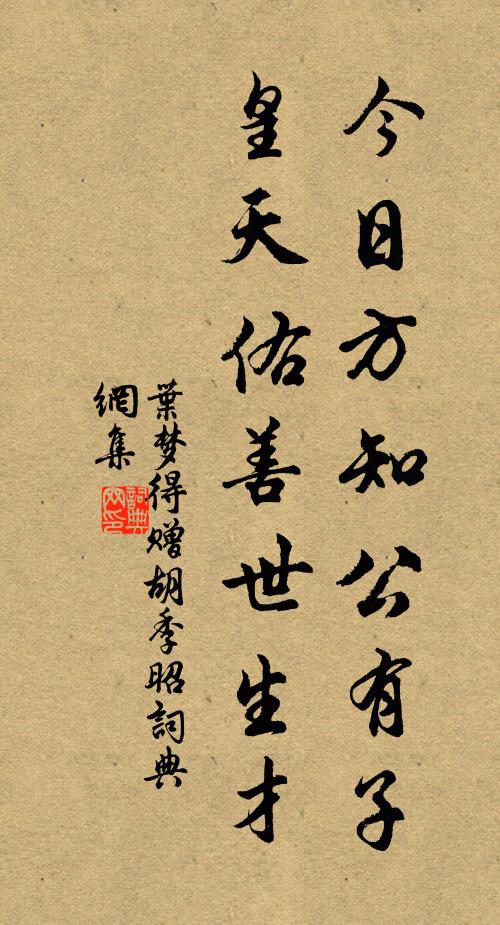 今日方知公有子
皇天佑善世生才
葉梦得赠胡季昭詞典
網集
詞典
网印